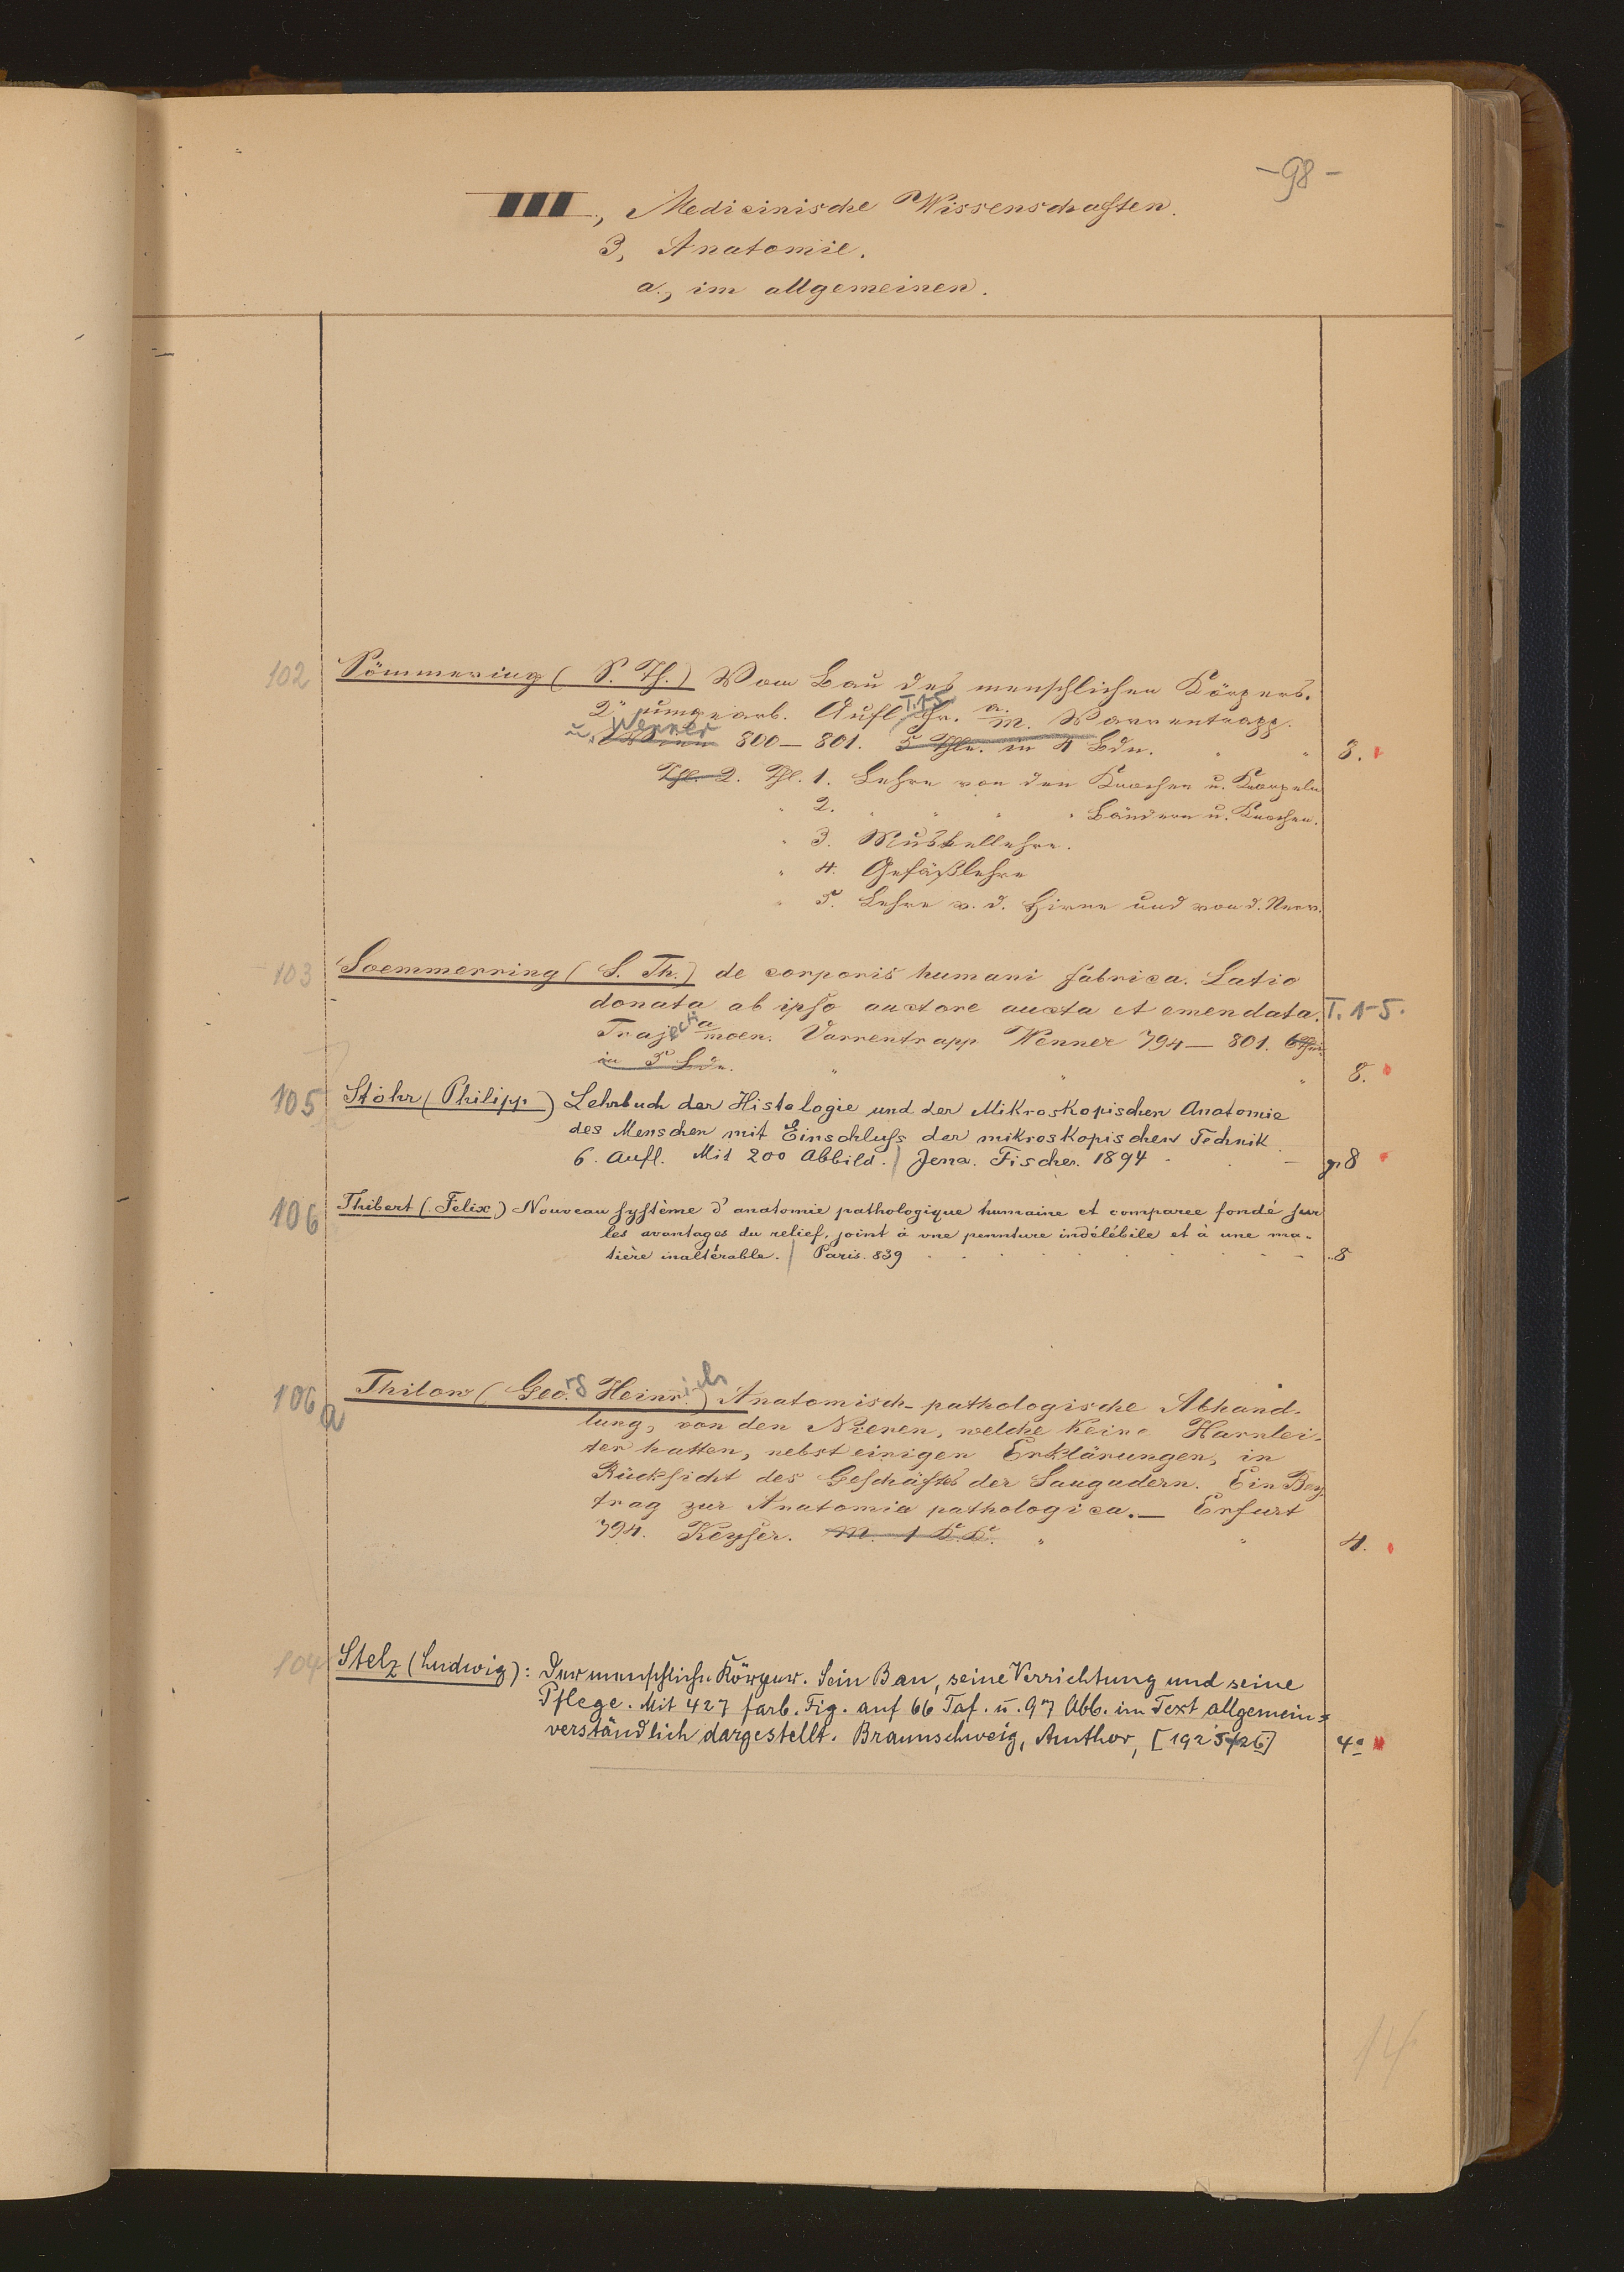 -98-
III., Medicinische Wissenschaften.
3, Anatomie.
a., im allgemeinen.
102 Sömmering (S. Th.) Vom Bau des menschlichen Körpers.
2te umgearb. Aufl. T. 1-5. Fr. a. M. Varrentrapp
u. Wenner 800-801. 5 Thle. in 4 Bdn. " " 8.
Thl. 2. Thl. 1. Lehre von den Knochen u. Knorpeln
" 2. " " " " Bändern u. Knochen.
" 3. Muskellehre.
" 4. Gefäßlehre
" 5. Lehre v. d. Hirne und von d. Nerv.
103 Soemmerring (S. Th.) de corporis humani fabrica. Latio
donata ab ipso auctore aucta et emendata. T. 1-5.
Trajecti a moen. Varrentrapp Wenner 794-801.
in 5 Bdn. " " " 8.
105 Stöhr (Philipp) Lehrbuch der Histologie und der Mikroskopischen Anatomie
des Menschen mit Einschluss der mikroskopischen Technik
6. Aufl. Mit 200 Abbild. | Jena. Fischer. 1894 - - gr 8
106 Thibert (Felix) Nouveau système d'anatomie pathologique humaine et comparee fondé sur
les avantages du relief, joint à une pennture indélébile et à une ma-
tière inaltérable. | Paris. 839 8
106a Thilow (Georg Heinrich) Anatomisch-pathologische Abhand-
lung, von den Nieren, welche keine Harnlei-
ter hatten, nebst einigen Erklärungen, in
Rücksicht des Geschäftes der Saugadern. Ein Bey-
trag zur Anatomia pathologica.- Erfurt
794. Keyser. M. 1 K. K. " " 4.
104 Stelz (Ludwig): Der menschliche Körper. Sein Bau, seine Verrichtung und seine
Pflege. Mit 427 farb. Fig. auf 66 Taf. u. 97 Abb. im Text allgemein=
verständlich dargestellt. Braunschweig, Amthor, [1925/26] 4°
14